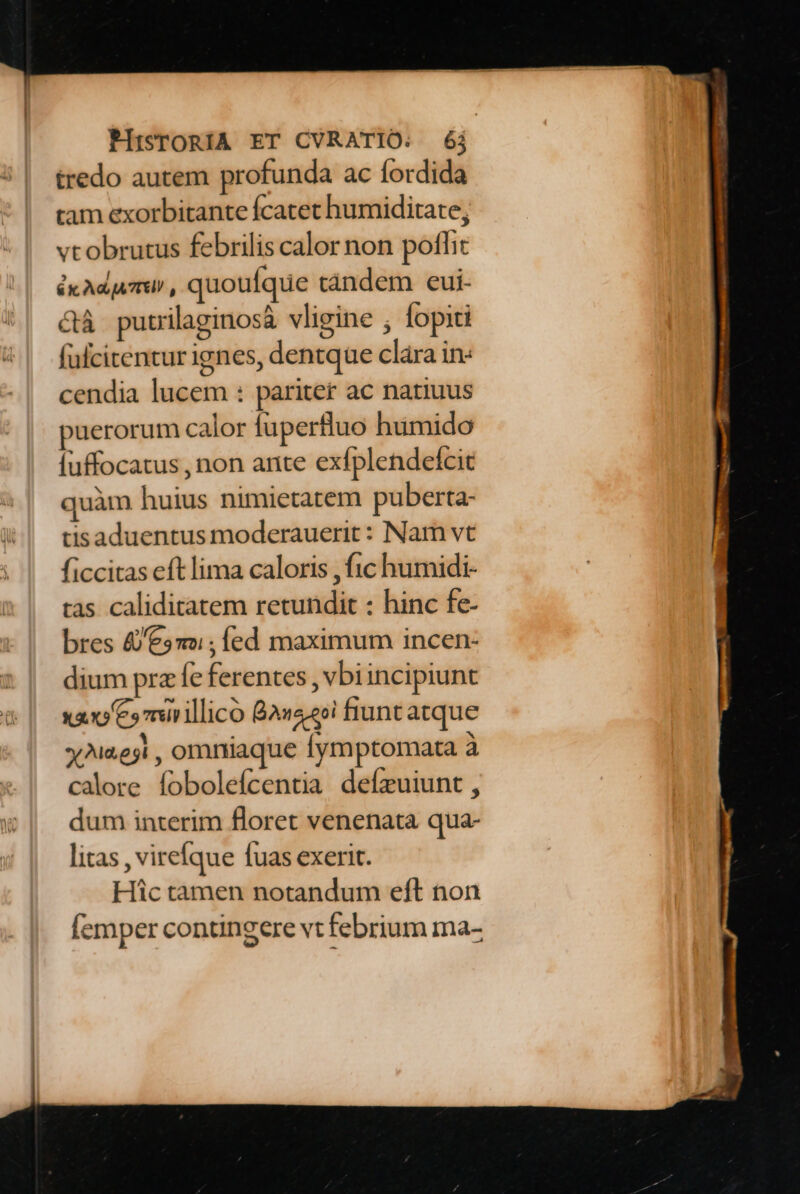 HISTORIA ET CVRATIO. 63
tredo autem profunda ac ſordida
tam exorbitante ſcatet humiditate,
vt obrutus febrilis calor non poſſit
ἐκλάμπειν, quouſque tandem eui-
ctâ putrilaginosâ vligine, ſopiti
ſuſcitentur ignes, dentque clara in-
cendia lucem : pariter ac natiuus
puerorum calor ſuperfluo humido
ſuffocatus, non ante exſplendeſcit
quàm huius nimietatem puberta-
tis aduentus moderauerit : Nam vt
ſiccitas eſt lima caloris, ſic humidi-
tas caliditatem retundit : hinc fe-
bres ; ſed maximum incen-
dium præ ſe ferentes, vbi incipiunt
illicò βληχροὶ fiunt atque
χλιαροὶ, omniaque ſymptomata à
calore ſoboleſcentia deſæuiunt,
dum interim floret venenata qua-
litas, vireſque ſuas exerit.
Hîc tamen notandum eſt non
ſemper contingere vt febrium ma-